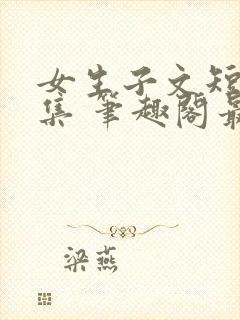 女生子文短
集 筆趣閣最
梁燕